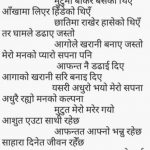 मुटुमा बोकेर बसेको थिएँ
आँखामा लिएर हिँडेको थिएँ
छातिमा राखेर हासेको थिएँ
तर घामले डढाए जस्तो
आगोले खरानी बनाए जस्तो
मेरो मनको प्यारो सपना पनि
आफन्त नै डढाई दिए
आगाको खरानी सरि बनाइ दिए
यसरी अधुरो भयो मेरो सपना
अधुरै रह्यो मनको कल्पना
मुटुत मेरो मरेर गयो
आशुत एउटा साथी रहेछ
आफन्तत आफ्नो भन्नु रहेछ
साहारा दिनेत जीवन रहेछ